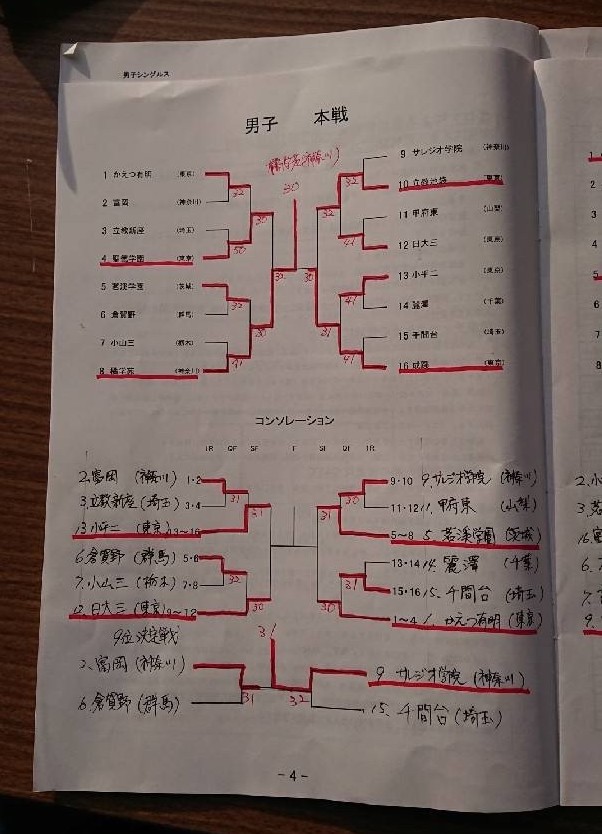 男子シングルス
男子 本戦
(神奈川)
30
1 かえつ有明 (東京)
2 富岡 (神奈川)
3 立教新座 (埼玉)
4 聖徳学園 (東京)
5 茗渓学園 (茨城)
6 倉賀野 (群馬)
7 小山三 (栃木)
8 橘学苑 (神奈川)
32
30
32
41
30
30
32
9 サレジオ学院 (神奈川)
10 立教池袋 (東京)
11 甲府東 (山梨)
12 日大三 (東京)
13 小平二 (東京)
14 麗澤 (千葉)
15 千間台 (埼玉)
16 成蹊 (東京)
32
41
41
41
32
31
30
コンソレーション
1R QF SF F SF QF 1R
2.富岡 (神奈川) 1・2
3.立教新座 (埼玉) 3・4
13.小平二 (東京) 13~16
6.倉賀野 (群馬) 5・6
7.小山三 (栃木) 7・8
12.日大三 (東京) 9~12
31
31
32
30
9・10 9.サレジオ学院 (神奈川)
11・12 11.甲府東 (山梨)
5~8 5.茗渓学園 (茨城)
13・14 14.麗澤 (千葉)
15・16 15.千間台 (埼玉)
1~4 1.かえつ有明 (東京)
30
31
31
30
9位決定戦
2.富岡 (神奈川)
6.倉賀野 (群馬)
31
31
32
9 サレジオ学院 (神奈川)
15.千間台 (埼玉)
- 4 -